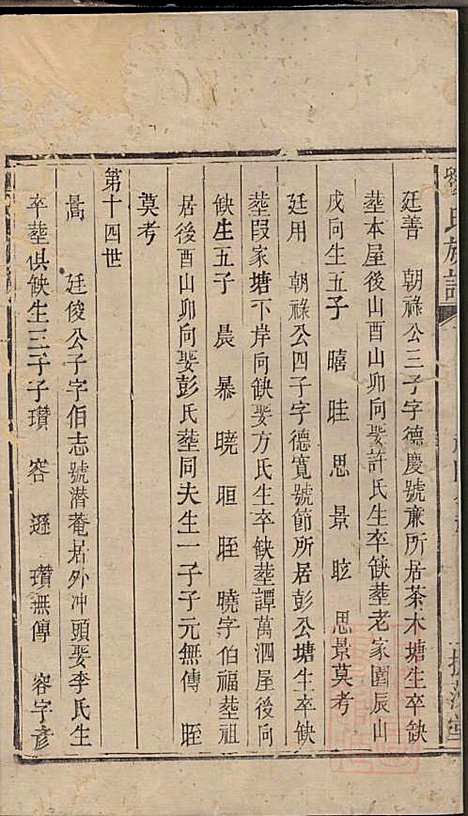 氏族譜
廷善　朝祿公三子字德慶號亷所居茶木塘生卒缺
塟本屋後山酉山卯向娶許氏生卒缺塟老家園辰山
戌向生五子　暿　㫼　思　景　昡　　思景莫考
廷用　朝祿公四子字德寬號節所居彭公塘生卒缺
塟叚家塘下岸向缺娶方氏生卒缺塟譚萬泗屋後向
缺生五子　晨　暴　曉　晅　眰　曉字伯福塟祖
居後酉山卯向娶彭氏塟同夫生一子子元無傳　眰
莫考
第十四世
暠　廷俊公子字伯志號潛菴居外冲頭娶李氏生
卒塟俱缺生三子子瓚　容　遜　瓚無傳　容字彦